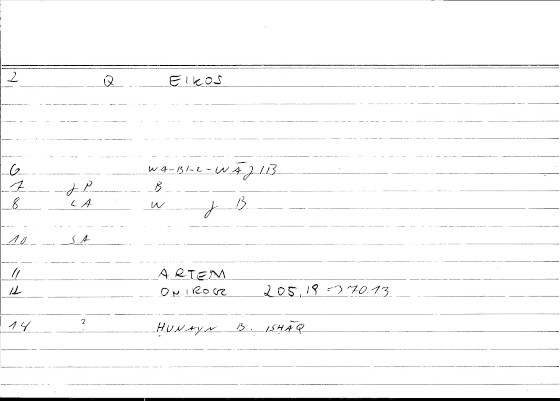 2 Q EIKOS
6 WA-BI-L-WĀǦIB
7 ǦP B
8 LA W Ǧ B
10 SA
11 ARTEM
12 ONIROCR 205,19 => 70.13
14 ? HUNAYN B. ISHĀQ